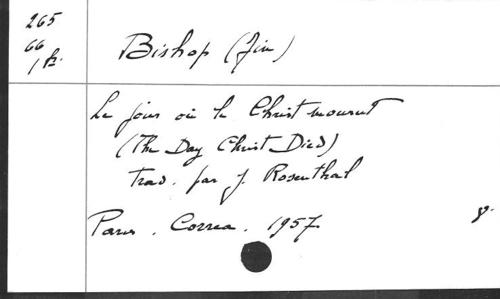 265
66
Bishop (Jim)
Le jour où le Christ mourut
(The Day Christ Died)
Trad. par J. Rosenthal
Paris. Correa. 1957.
8.